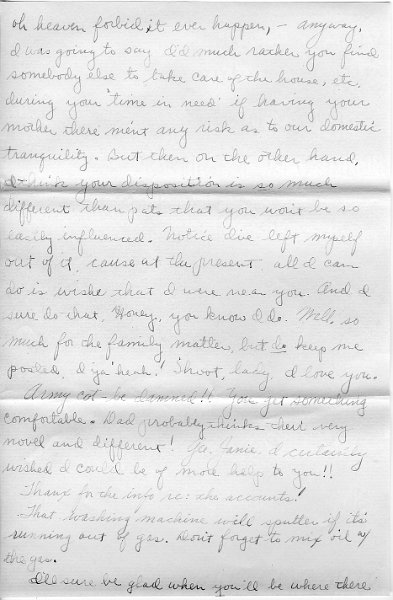 oh heaven forbid it ever happen, - anyway,
I was going to say I'd much rather you find
somebody else to take care of the house, etc,
during your "time in need" if having your
mother there meant any risk as to our domestic
tranquility. But then on the other hand,
I think your disposition is so much
different than pats that you won't be so
easily influenced. Notice I've left myself
out of it, cause at the present all I can
do is wishe that I were near you. And I
sure do that, Honey, you know I do. Well, so
much for the family matter, but do keep me
posted, I ya' heah! Shoot, lady, I love you.
Army cot - be damned!! You get something
comfortable. Dad probably thinks they'll very
novel and different! Gee, Janie, I certainly
wished I could be of more help to you!!
Thanx for the info re: the accounts!
That washing machine will sputter if it's
running out of gas. Don't forget to mix oil w/
the gas.
I'll sure be glad when you'll be where there